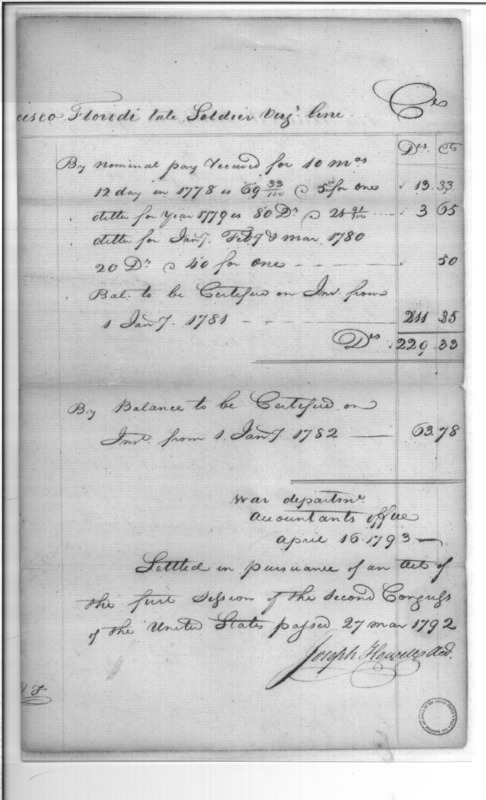 Floridi late Soldier Virgᵃ line Cr
Drs. Cts
By nominal pay Received for 10 mos
12 day in 1778 is 69 33/100 @ for one 13.33
ditto for Year 1779 is 80 Ds @ 3 65
ditto for Jany. Feby & mar 1780
20 Ds @ 40 for one 50
Bal. to be Certified on Int. from
1 Jany. 1781 211 85
Drs 229 33
By Balance to be Certified on
Int. from 1 Jany. 1782 63.78
War departmt
Accountants office
April 16.1793
Settled in pursuance of an Act of
the first Session of the second Congress
of the United States passed 27 mar 1792
Joseph Howell Act.